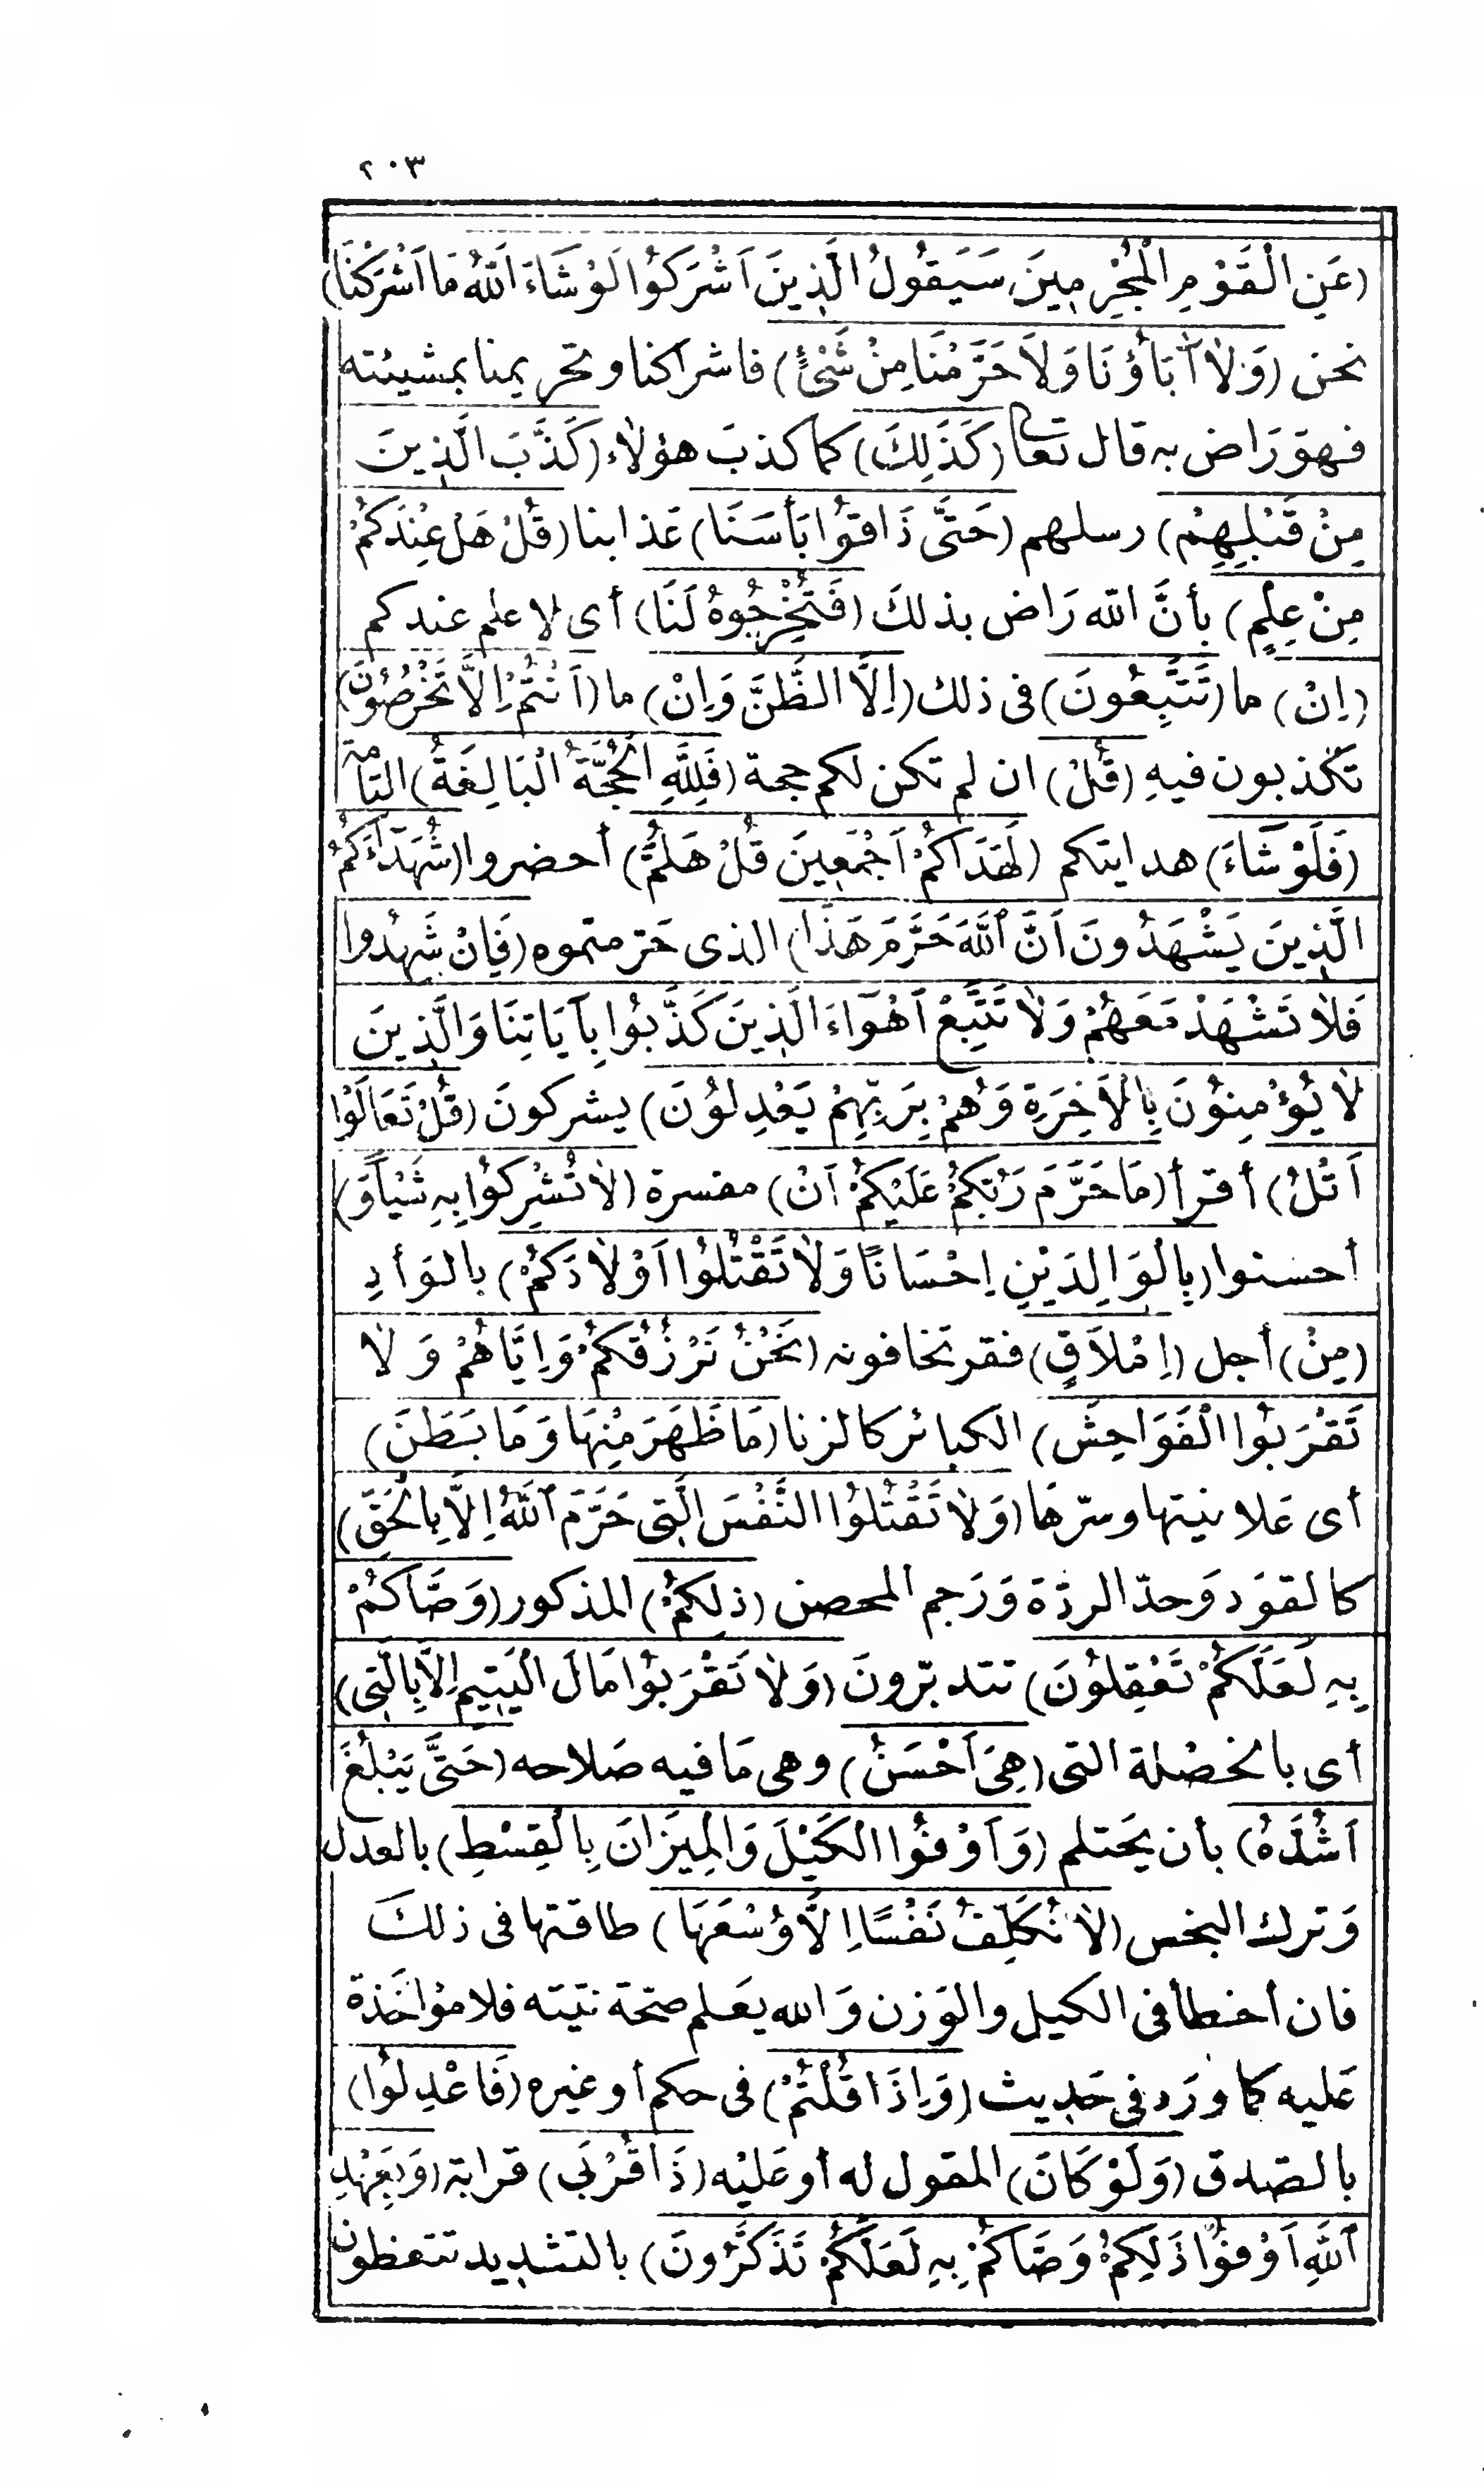 ٢٠٣
(عَنِ الْقَوْمِ الْمُجْرِمِينَ سَيَقُولُ الَّذِينَ اَشْرَكُوا لَوْ شَاءَ اَللّٰهُ مَا اَشْرَكْنَا)
نحن (وَلاٰ آبَاؤُنَا وَلاَ حَرَّمْنَا مِنْ شَىْءٍ) فاشراكنا وتحريمنا بمشيئته
فهوَ رَاض به قال تعالى (كَذَلِكَ) كما كذبَ هؤلاء (كَذَّبَ الَّذِينَ
مِنْ قَبْلِهِمْ) رسلهم (حَتَّى ذَاقوُا بَأسَنَا) عَذابنا (قُلْ هَلْ عِنْدَكُمْ
مِنْ عِلْمٍ) بأنَّ الله رَاض بذلكَ (فَتُخْرِجُوهُ لَنَا) أى لا علم عندكم
(اِنْ) ما (تَتَّبِعُونَ) فى ذلك (اِلاَّ الظَّنَّ وَاِنْ) ما (اَنْتُمْ اِلاَّ تَخْرُصُونَ)
تكذبون فيهِ (قُلْ) ان لم تكن لكم حجة (فَلِلَّهِ الْحُجَّةُ الْبَالِغَةُ) التامة
(فَلَوْ شَاءَ) هدايتكم (لَهَدَاكُمْ اَجْمَعِينَ قُلْ هَلُمَّ) أحضروا (شُهَدَآءَكُمُ
الَّذِينَ يَشْهَدُونَ اَنَّ اَللَّهَ حَرَّمَ هَذَا) الذى حَرمتموه (فَاِنْ شَهِدُوا
فَلاٰ تَشْهَدْ مَعَهُمْ وَلاٰ تَتَّبِعْ اَهْوَآءَ الَّذِينَ كَذَّبُوا بِآيَاتِنَا وَالَّذِينَ
لاٰ يُؤْمِنوُنَ بِالْاَخِرَةِ وَهُمْ بِرَبِّهِمْ يَعْدِلوُنَ) يشركونَ (قُلْ تَعَالَوْا
اَتْلُ) أقرأ (مَا حَرَّمَ رَبُّكُمْ عَلَيْكُمْ اَنْ) مفسرة (لاٰ تُشْرِكوُا بِهِ شَيْأً وَ)
أحسنوا (بِالْوَالِدَيْنِ اِحْسَانًا وَلاٰ تَقْتُلُوا اَوْلاٰدَكُمْ) بالوَأدِ
(مِنْ) أجل (اِمْلاَقٍ) فقر تخافونه (نَحْنُ نَرْزُقُكُمْ وَاِيَّاهُمْ وَلاٰ
تَقْرَبوُا الْفَوَاحِشَ) الكبائر كالزنا (مَا ظَهَرَ مِنْهَا وَمَا بَطَنَ)
أى عَلانيتها وسرّهَا (وَلاٰ تَقْتُلُوا النَّفْسَ الَّتِى حَرَّمَ اَللَّهُ اِلاَّ بِالْحَقِّ)
كالقوَد وَحدّ الردّة وَرَجم المحصن (ذلِكُمْ) المذكور (وَصَّاكُمْ
بِهِ لَعَلَّكُمْ تَعْقِلوُنَ) تتدبّرونَ (وَلاٰ تَقْرَبوُا مَالَ الْيَتِيمِ اِلاَّ بِالَّتِى)
أى بالخصْلة التى (هِىَ اَحْسَنُ) وهى مَا فيه صَلاحه (حَتَّى يَبْلُغَ
اَشُدَّهُ) بأن يَحتلم (وَاَوْفُوا الْكَيْلَ وَالْمِيزَانَ بِالْقِسْطِ) بالعدل
وَترك البخس (لاٰ نُكَلِّفُ نَفْسًا اِلاَّ وُسْعَهَا) طاقتها فى ذلكَ
فان أخطأ فى الكيل والوَزن وَالله يعَلم صحّة نيّته فلا مؤاخَذة
عَليه كما ورَد فى حَديث (وَاِذَا قُلْتُمْ) فى حكم أو غيره (فَاعْدِلُوا)
بالصّدق (وَلَوْ كَانَ) المقول له أو عَليْه (ذَا قُرْبَى) قرابة (وَبِعَهْدِ
اَللَّهِ اَوْفوُا ذَلِكُمْ وَصَّاكُمْ بِهِ لَعَلَّكُمْ تَذَكَّرُونَ) بالتشديد تتعظون